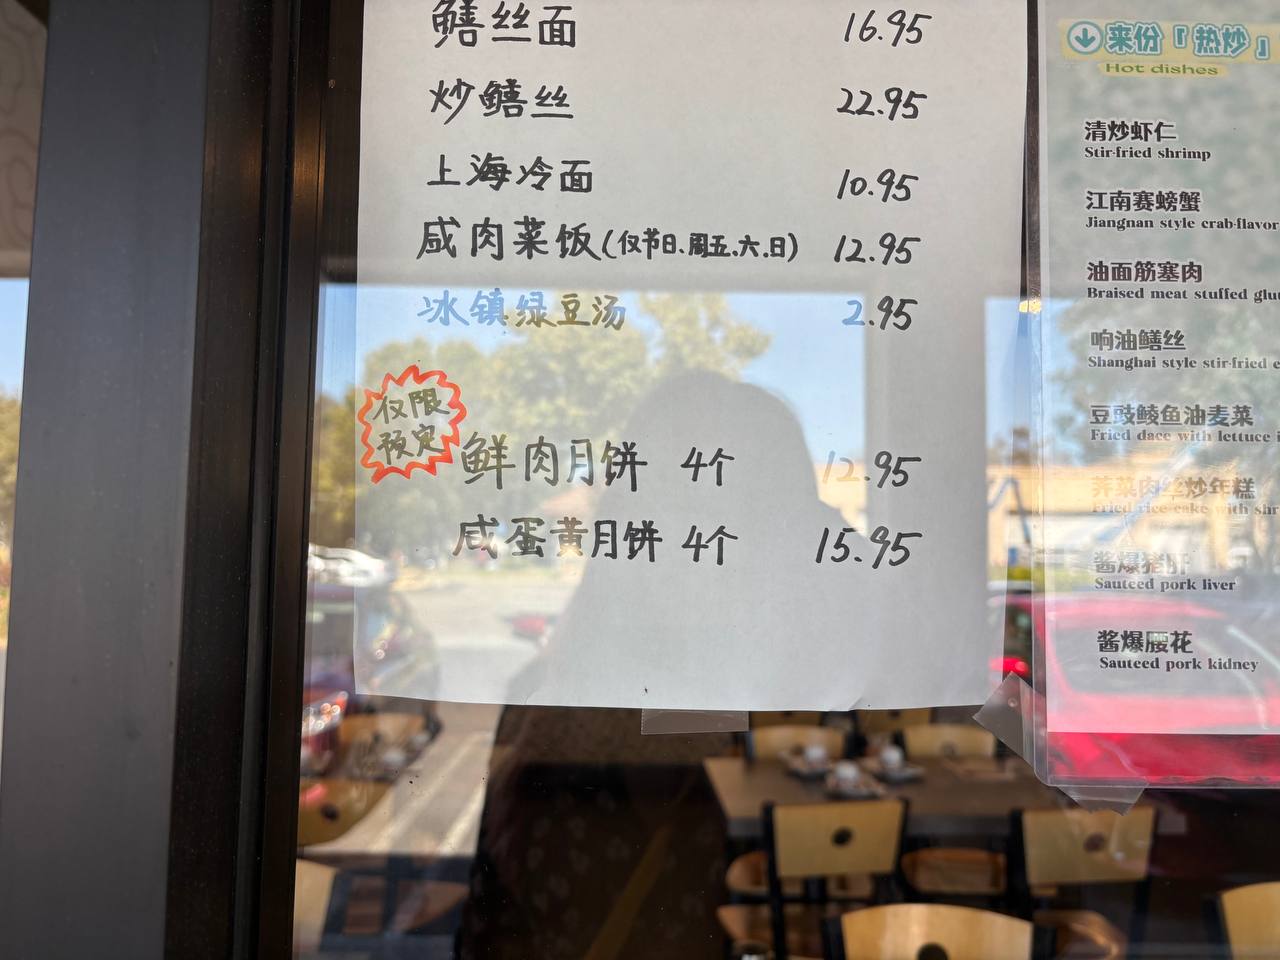 鳝丝面 16.95
炒鳝丝 22.95
上海冷面 10.95
咸肉菜饭(仅节日、周五、六、日) 12.95
冰镇绿豆汤 2.95
仅限
预定
鲜肉月饼 4个 12.95
咸蛋黄月饼 4个 15.95
来份「热炒」
Hot dishes
清炒虾仁
Stir-fried shrimp
江南赛螃蟹
Jiangnan style crab-flavor
油面筋塞肉
Braised meat stuffed glu
响油鳝丝
Shanghai style stir-fried e
豆豉鲮鱼油麦菜
Fried dace with lettuce i
荠菜肉丝炒年糕
Fried rice cake with shr
酱爆猪肝
Sauteed pork liver
酱爆腰花
Sauteed pork kidney